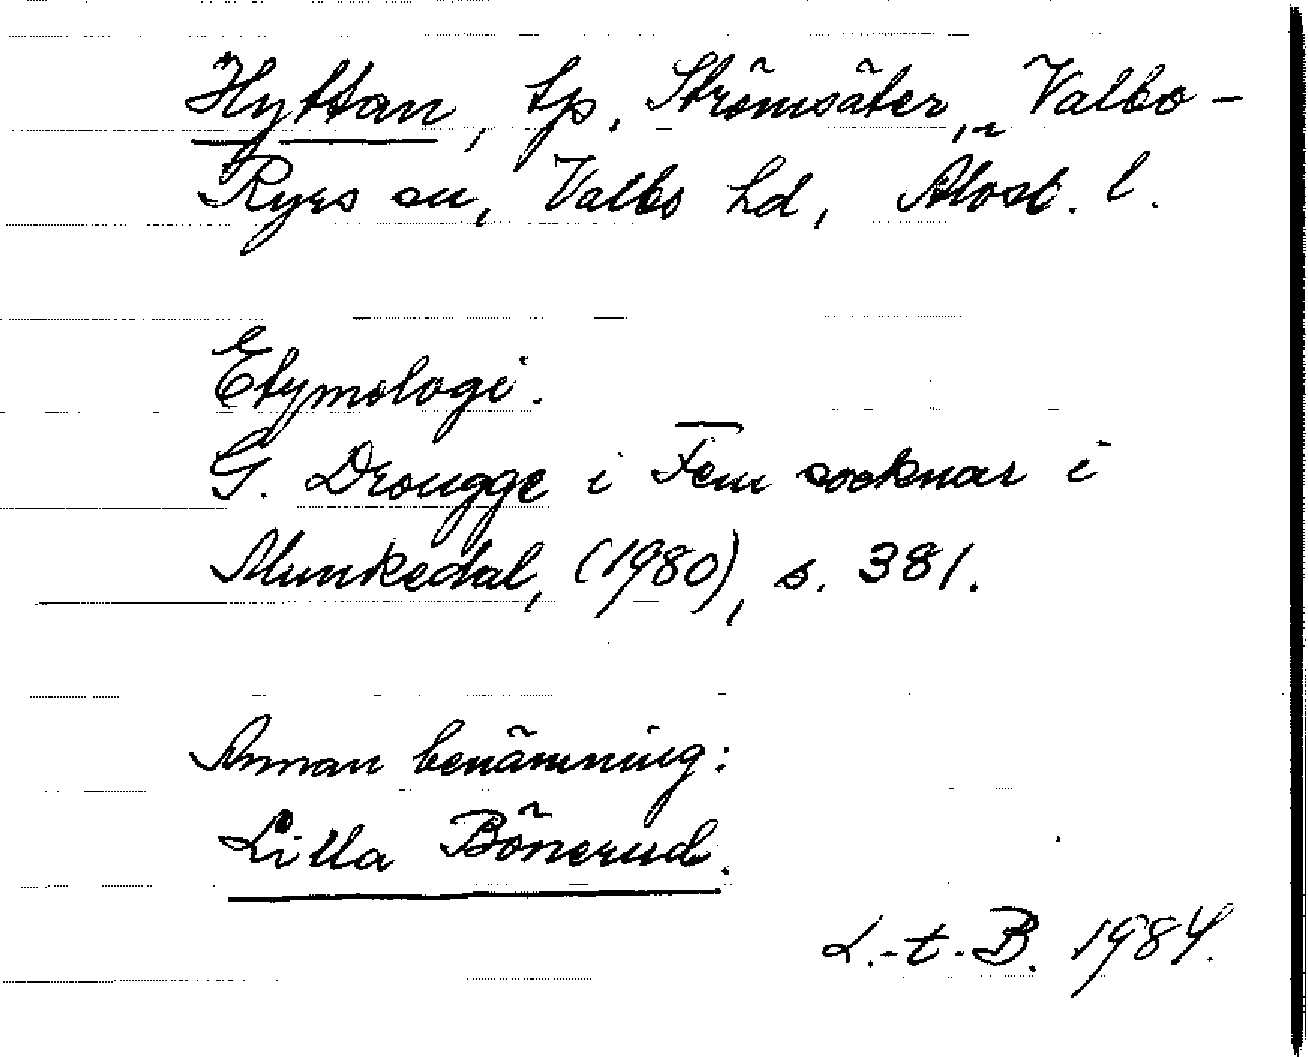 Hyttan, tp, Strömsäter, Valbo-
Ryrs sn, Valbo hd, Älvsb. l.
Etymologi.
G. Drougge i Fem socknar i
Munkedal, (1980), s. 381.
Annan benämning:
Lilla Bönerud.
L.-t. B. 1984.